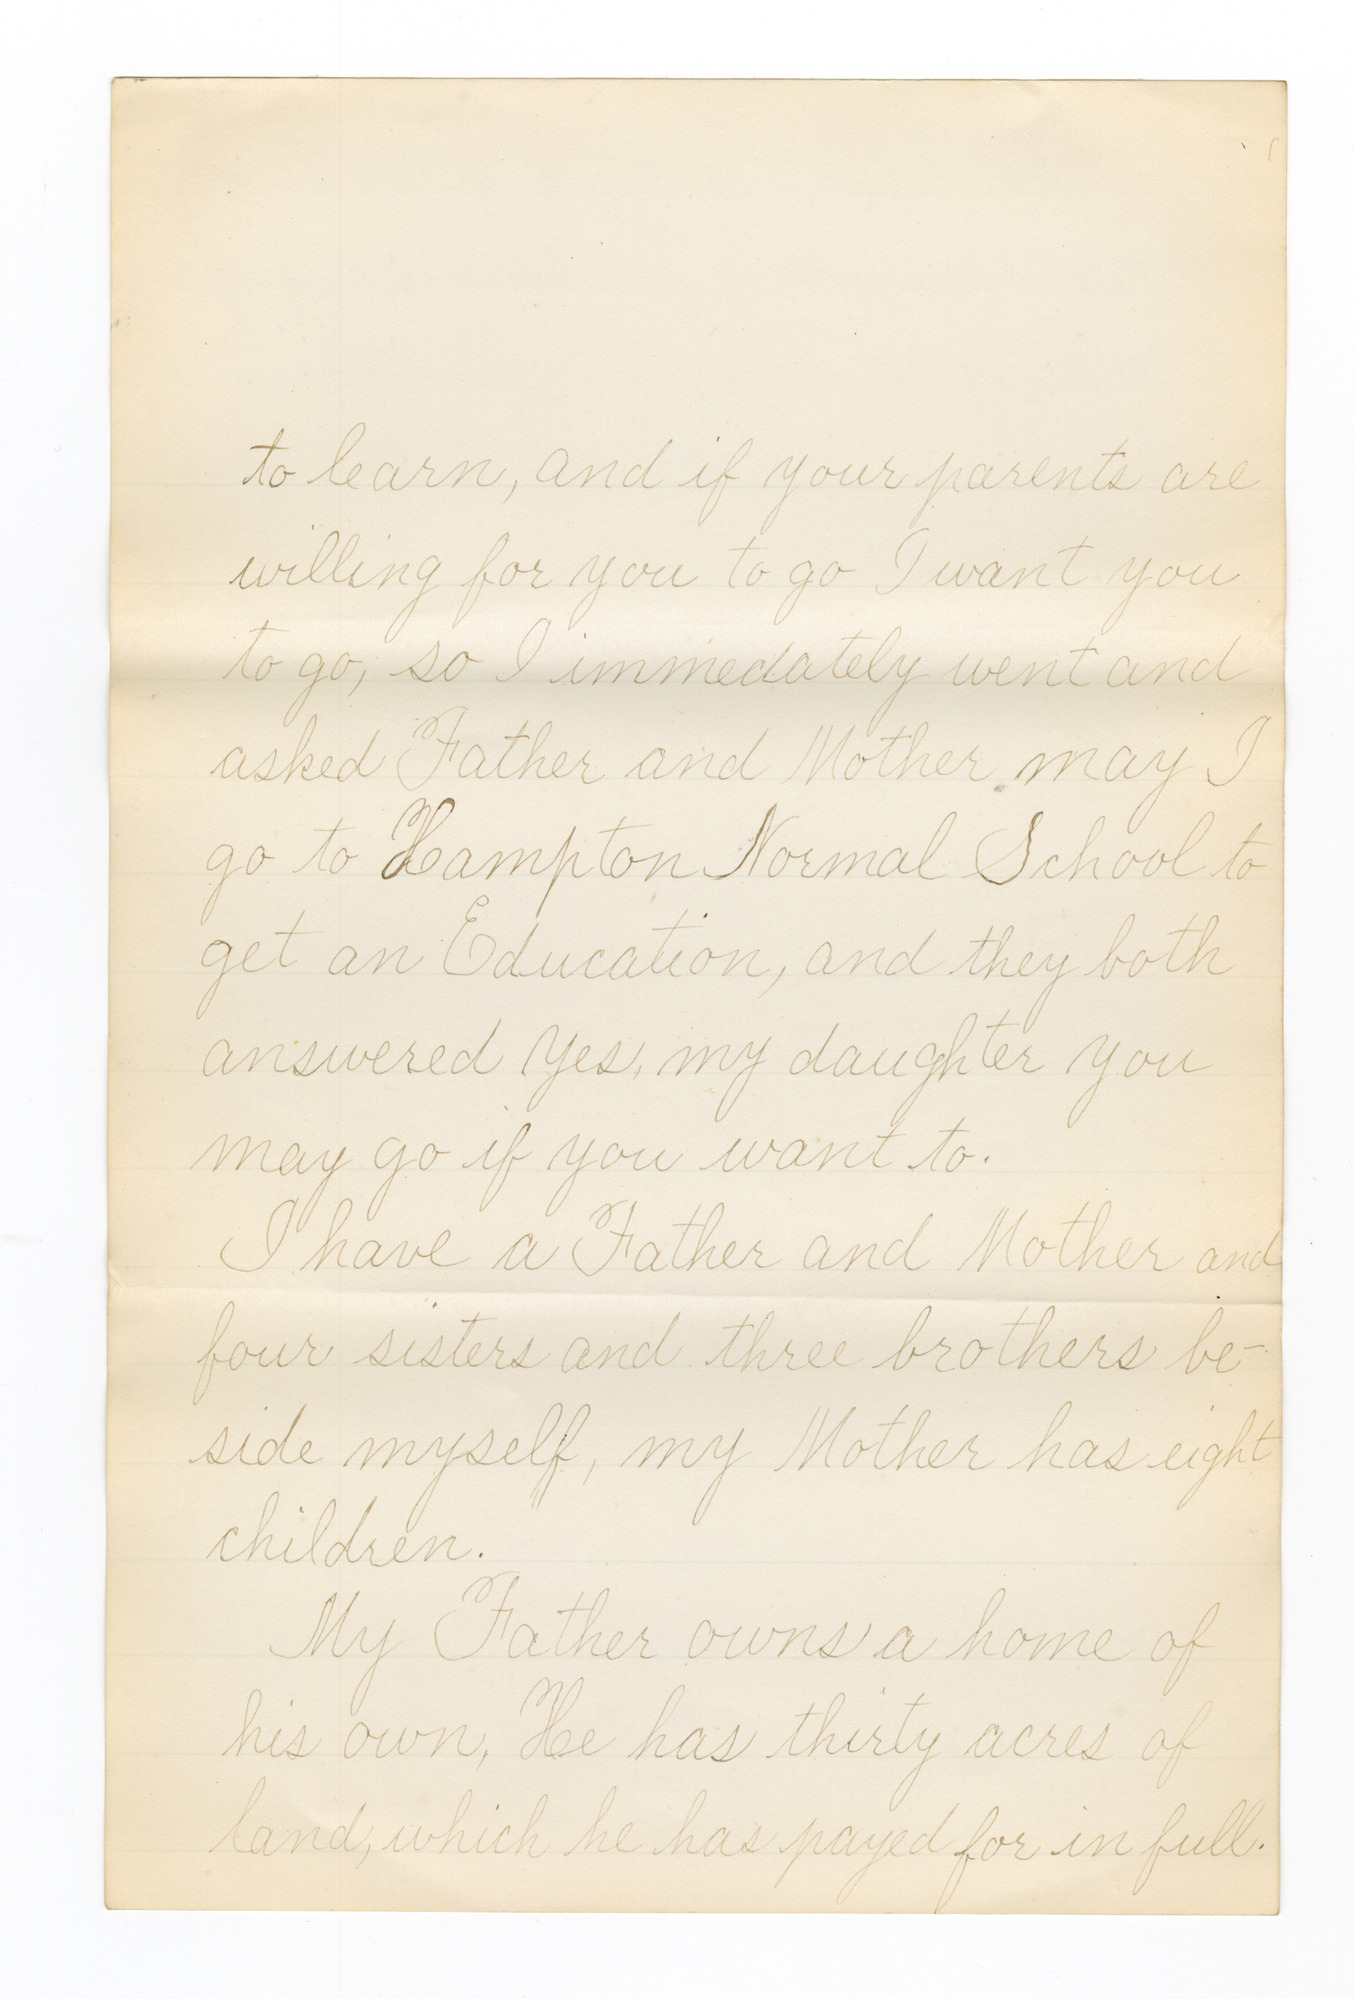 to learn, and if your parents are
willing for you to go I want you
to go, so I immedately went and
asked Father and Mother may I
go to Hampton Normal School to
get an Education, and they both
answered Yes, my daughter you
may go if you want to.
I have a Father and Mother and
four sisters and three brothers be-
side myself, my Mother has eight
children.
My Father owns a home of
his own, He has thirty acres of
land, which he has payed for in full.